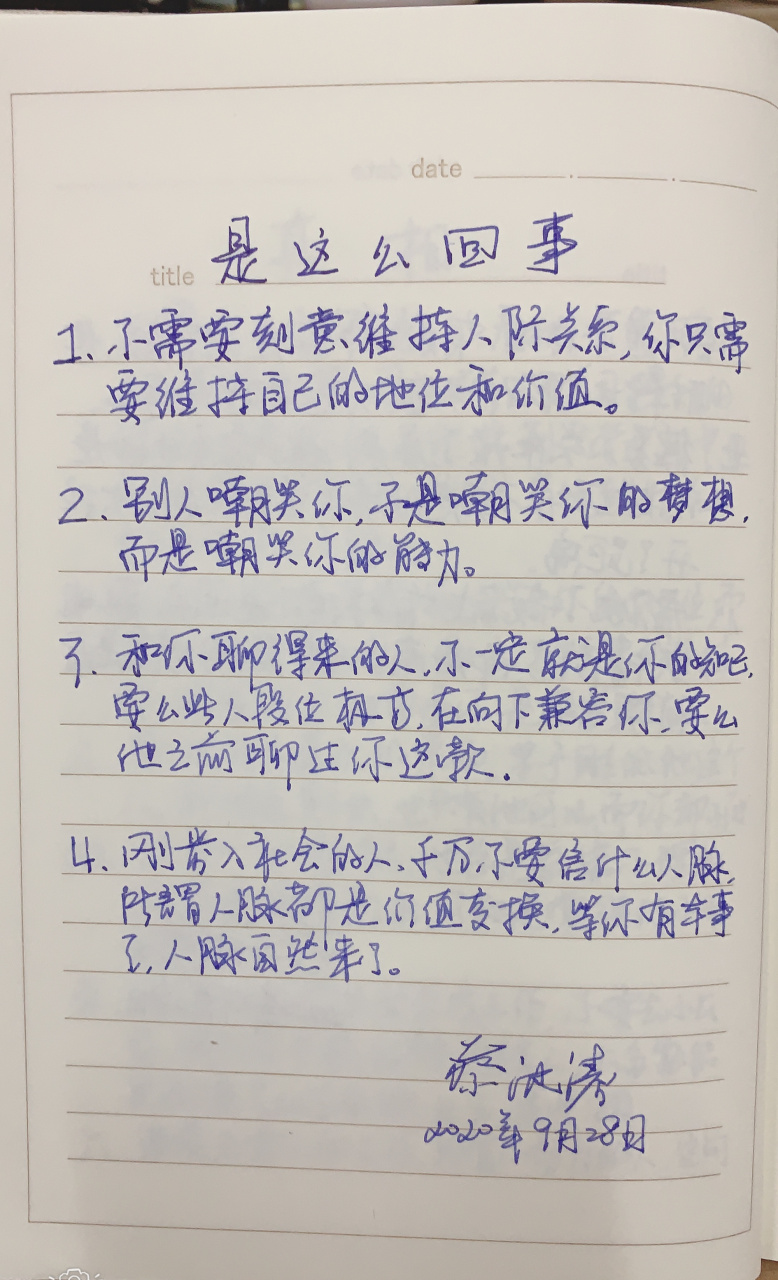 date
title 是这么回事
1、不需要刻意维持人际关系,你只需
要维持自己的地位和价值。
2、别人嘲笑你,不是嘲笑你的梦想,
而是嘲笑你的能力。
3、和你聊得来的人,不一定就是你的知己,
要么此人段位极高,在向下兼容你,要么
他之前聊过你这款.
4、刚步入社会的人,千万不要信什么人脉,
所谓人脉都是价值交换,等你有本事
了,人脉自然来了。
蔡沈涛
2020年9月28日